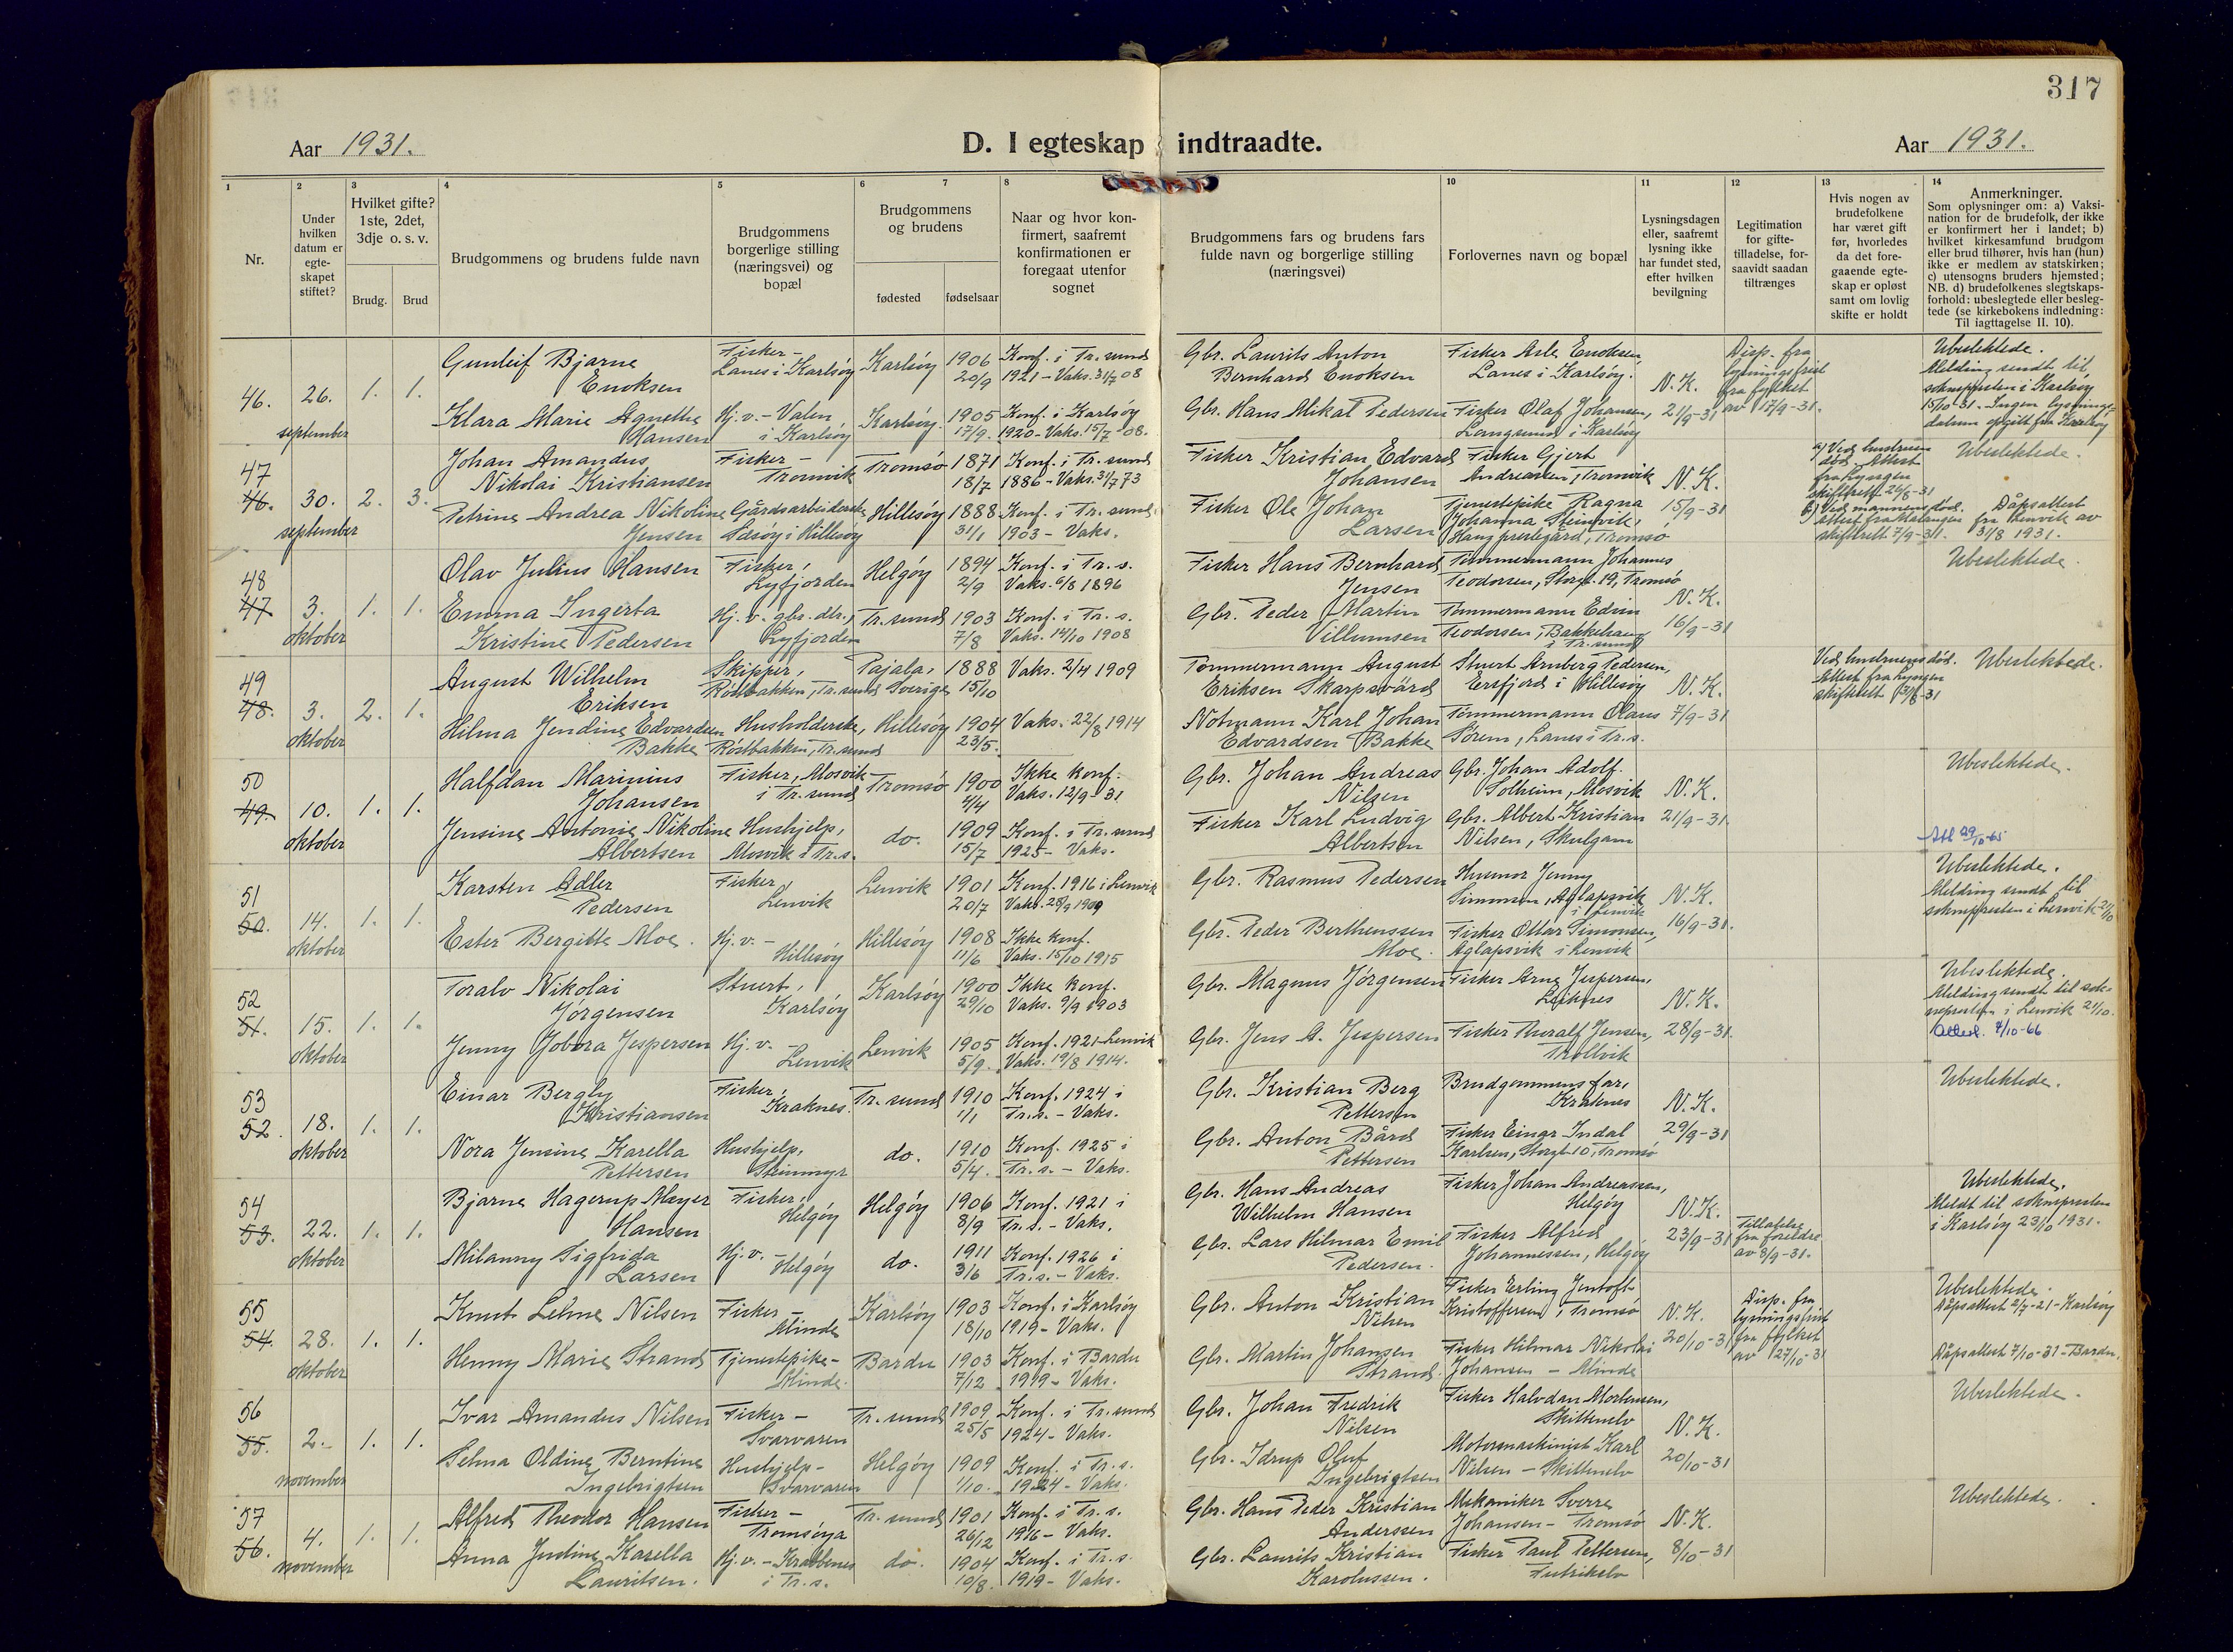 317
Aar 1931.
D. I egteskap indtraadte.
Aar 1931.
1
2
3
4
5
6
7
8
10
11
12
13
14
Nr.
Under
hvilken
datum er
egte-
skapet
stiftet?
Hvilket gifte?
1ste, 2det,
3dje o. s. v.
Brudg.
Brud
Brudgommens og brudens fulde navn
Brudgommens
borgerlige stilling
(næringsvei) og
bopæl
Brudgommens
og brudens
fødested
fødselsaar
Naar og hvor kon-
firmert, saafremt
konfirmationen er
foregaat utenfor
sognet
Brudgommens fars og brudens fars
fulde navn og borgerlige stilling
(næringsvei)
Forlovernes navn og bopæl
Lysningsdagen
eller, saafremt
lysning ikke
har fundet sted,
efter hvilken
bevilgning
Legitimation
for gifte-
tilladelse, for-
saavidt saadan
tiltrænges
Hvis nogen av
brudefolkene
har været gift
før, hvorledes
da det fore-
gaaende egte-
skap er opløst
samt om lovlig
skifte er holdt
Anmerkninger.
Som oplysninger om: a) Vaksi-
nation for de brudefolk, der ikke
er konfirmert her i landet; b)
hvilket kirkesamfund brudgom
eller brud tilhører, hvis han (hun)
ikke er medlem av statskirken;
c) utensogns bruders hjemsted;
NB. d) brudefolkenes slegtskaps-
forhold: ubeslegtede eller besleg-
tede (se kirkebokens indledning:
Til iagttagelse II. 10).
46. 26. september 1. 1.
Gunleif Bjarne
Enoksen
Fisker -
Lanes i Karlsøy
Karlsøy
1906
20/9
Konf. i Tr.sund
1921 - Vaks. 31/7 08
Gbr. Laurits Anton
Bernhard Enoksen
Fisker Asle Enoksen,
Lanes i Karlsøy.
N.K.
21/9-31
Disp. fra
lysningsfrist
fra fylket
av 17/9-31.
Ubeslektede.
Melding sendt til
soknepresten i Karlsøy
15/10-31. Ingen lysnings-
datum opgitt fra Karlsøy
Klara Marie Agnethe
Hansen
Hj.v. - Valen
i Karlsøy
Karlsøy.
1905
17/9.
Konf. i Karlsøy
1920 - Vaks. 15/7 08.
Gbr. Hans Mikal Pedersen
Fisker Olaf Johansen,
Langsund i Karlsøy
47
46. 30. september 2. 3.
Johan Amandus
Nikolai Kristiansen
Fisker -
Tromvik
Tromsø
1871
18/7
Konf. i Tr.sund
1886 - Vaks. 31/7 73
Fisker Kristian Edvard
Johansen
Fisker Gjert
Andreassen, Tromvik
N.K.
15/9-31
a) Ved hustruens
død. Attest
fra Lyngen
skifterett 26/8-31
b) Ved mannens død.
Attest fra Malangen
skifterett 7/9-31.
Ubeslektede.
Dåpsattest
fra Lenvik av
31/8 1931.
Petrine Andrea Nikoline
Jensen
Gårdsarbeiderske
i Hillesøy
Hillesøy
1888
31/1
Konf. i Tr.sund.
1903 - Vaks.
Fisker Ole Johan
Larsen
Tjenestepike Ragna
Johanna Steinvik,
Tromsø
48
47 3. oktober 1. 1.
Olav Julius Hansen
Fisker,
Lyfjorden
Helgøy
1894
2/9
Konf. i Tr.s.
Vaks. 6/8 1896
Fisker Hans Bernhard
Jensen
Tømmermann Johannes
Teodorsen, Storgt. 19, Tromsø
N.K.
16/9-31
Ubeslektede.
Emma Ingerta
Kristine Pedersen
Hj.v. gbr.dtr.,
Lyfjorden
Tr.sund
1903
7/8
Konf. i Tr.s.
Vaks. 14/10 1908
Gbr. Peder Martin
Villumsen
Tømmermann Edvin
Teodorsen, Bakkehaug
i Tr.sund
49
48. 3. oktober 2. 1.
August Wilhelm
Eriksen
Skipper,
Røstbakken, Tr.sund
Pajala,
Sverige
1888
15/10
Vaks. 2/4 1909
Tømmermann August
Eriksen Skarpsvärd
Stuert Arnberg Pedersen,
Ersfjord i Hillesøy
N.K.
7/9-31
Ved hustruens død.
Attest fra Lyngen
skifterett
Ubeslektede.
Hilma Jendine Edvardsen
Bakke
Husholderske,
Røstbakken, Tr.sund
Hillesøy
1904
23/5.
Vaks. 22/8 1914
Notmann Karl Johan
Edvardsen Bakke
Tømmermann Olaus
Sørem, Lanes i Tr.s.
50
49. 10. oktober 1. 1.
Halfdan Marinius
Johansen
Fisker, Mosvik
i Tr.sund
Tromsø
1900
4/4
Ikke konf.
Vaks. 12/9-31
Gbr. Johan Andreas
Nilsen
Gbr. Johan Adolf
Solheim, Mosvik
N.K.
21/9-31.
Ubeslektede.
Jensine Antonie Nikoline
Albertsen
Hushjelp,
Mosvik i Tr.s.
do.
1909
15/7
Konf. i Tr.sund
1925 - Vaks.
Fisker Karl Ludvig
Albertsen
Gbr. Albert Kristian
Nilsen, Skulgam
51
50. 14. oktober 1. 1.
Karsten Adler
Pedersen
Fisker,
Lenvik
Lenvik
1901
20/7
Konf. 1916 i Lenvik
Vaks. 25/9 1909
Gbr. Rasmus Pedersen
Husmor Jenny
Simonsen, Aglapsvik
i Lenvik
N.K.
16/9-31.
Att 29/10-65
Ubeslektede.
Melding sendt til
soknepresten i Lenvik 21/10
Ester Bergitte Moe.
Hj.v. -
Hillesøy
Hillesøy
1908
11/6
Ikke konf.
Vaks. 15/10 1915
Gbr. Peder Berthenssen
Moe.
Fisker Ottar Simonsen,
Aglapsvik i Lenvik
52
51. 15. oktober 1. 1.
Toralv Nikolai
Jørgensen
Stuert,
Karlsøy
Karlsøy
1900
29/10
Ikke konf.
Vaks. 9/9 1903
Gbr. Magnus Jørgensen
Fisker Arne Jespersen,
Leiknes
N.K.
28/9-31.
Ubeslektede.
Melding sendt til sok-
nepresten i Lenvik 21/10.
Attest. 4/10-66
Jenny Jobora Jespersen
Hj.v. -
Lenvik
Lenvik
1905
5/9.
Konf. 1921 - Lenvik
Vaks. 19/8 1914.
Gbr. Jens A. Jespersen
Fisker Thoralf Jensen,
Trollvik
53
52. 18. oktober 1. 1.
Einar Bergly
Kristiansen
Fisker,
Kraknes.
Tr.sund
1910
1/1
Konf. 1924 i
Tr.s. - Vaks.
Gbr. Kristian Berg
Pettersen
Brudgommens far,
Kraknes
N.K.
29/9-31
Ubeslektede.
Nora Jensine Karella
Pettersen
Hushjelp,
Steinmyr
do.
1910
5/4.
Konf. 1925 i
Tr.s. - Vaks.
Gbr. Anton Bård
Pettersen
Fisker Einar Indal
Karlsen, Storgt 10, Tromsø
54
53. 22. oktober 1. 1.
Bjarne Hagerup Meyer
Hansen
Fisker,
Helgøy
Helgøy
1906
8/9
Konf. 1921 i
Tr.s. - Vaks.
Gbr. Hans Andreas
Wilhelm Hansen
Fisker Johan Andreassen,
Helgøy
N.K.
23/9-31
Tillatelse
fra foreldre
av 8/9-31.
Ubeslektede.
Meldt til soknepresten
i Karlsøy 23/10 1931.
Milanny Sigfrida
Larsen
Hj.v. -
Helgøy
do.
1911
3/6
Konf. 1926 i
Tr.s. - Vaks.
Gbr. Lars Hilmar Emil
Pedersen.
Fisker Alfred
Johannessen, Helgøy
55
54. 28. oktober 1. 1.
Knut Lelme Nilsen
Fisker -
Minde
Karlsøy
1903
18/10
Konf. i Karlsøy
1919 - Vaks.
Gbr. Anton Kristian
Nilsen
Fisker Erling Jentoft
Kristoffersen, Tromsø
N.K.
20/10-31
Disp. fra
lysningsfrist
fra fylket
av 27/10-31
Ubeslektede.
Dåpsattest 2/7-21 - Karlsøy
Henny Marie Strand
Tjenestepike -
Minde.
Bardu
1903
7/12
Konf. i Bardu
1919 - Vaks.
Gbr. Martin Johansen
Strand.
Fisker Hilmar Nikolai
Johansen - Minde
Dåpsattest 7/10-31 - Bardu.
56
55. 2. november 1. 1.
Ivar Amandus Nilsen
Fisker -
Svarvaren
Tr.sund
1909
25/5
Konf. i Tr.sund
1924 - Vaks.
Gbr. Johan Fredrik
Nilsen
Fisker Halvdan Mortensen,
Skittenelv
N.K.
20/10-31
Ubeslektede.
Selma Oldine Berntine
Ingebrigtsen
Hushjelp -
Svarvaren
Helgøy
1909
1/10.
Konf. i Tr.s.
1924 - Vaks.
Gbr. Idrup Oluf
Ingebrigtsen
Motormaskinist Karl
Nilsen - Skittenelv
57
56. 4. november 1. 1.
Alfred Theodor Hansen
Fisker -
Tromsøya
Tr.sund
1901
26/12
Konf. i Tr.s.
1916 - Vaks.
Gbr. Hans Peder Kristian
Anderssen
Mekaniker Sverre
Johansen - Tromsø
N.K.
8/10-31
Ubeslektede.
Anna Jendine Karella
Lauritsen.
Hj.v. - Krabbenes
i Tr.s.
do.
1904
10/8.
Konf. i Tr.s.
1919 - Vaks.
Gbr. Laurits Kristian
Karolussen.
Fisker Paul Pettersen,
Futrikelv